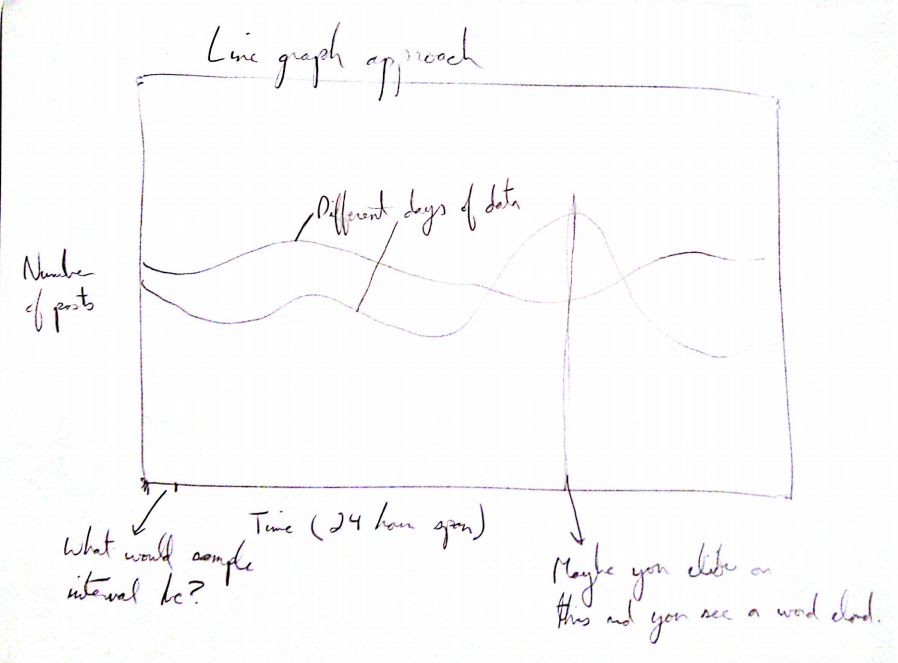 Line graph approach
Different days of data
Number
of posts
Time (24 hour span)
What would sample
interval be?
Maybe you click on
this and you see a word cloud.